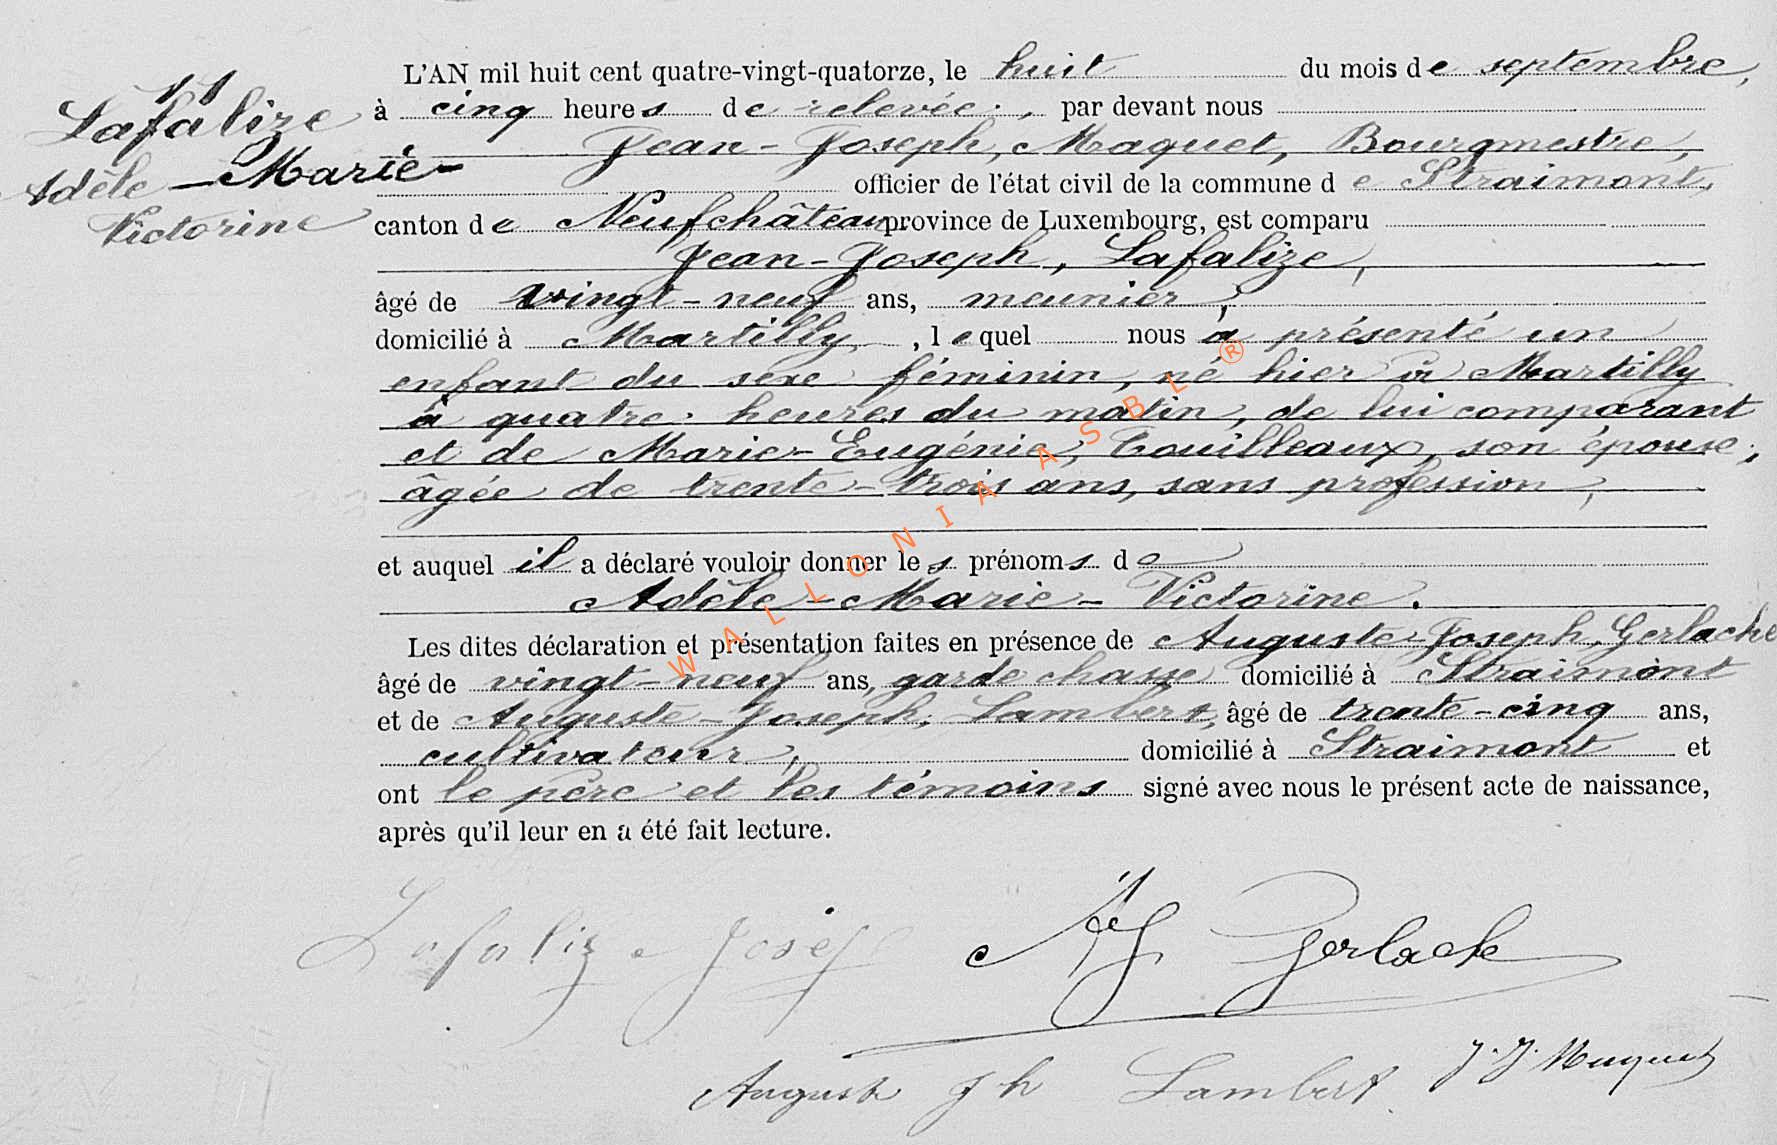 11
Lafalize
Adèle-Marie-
Victorine
L'AN mil huit cent quatre-vingt-quatorze, le huit du mois de septembre,
à cinq heures de relevée, par devant nous
Jean-Joseph, Maquet, Bourgmestre,
officier de l'état civil de la commune de Straimont,
canton de Neufchâteau, province de Luxembourg, est comparu
Jean-Joseph, Lafalize,
âgé de vingt-neuf ans, meunier,
domicilié à Martilly, lequel nous a présenté un
enfant du sexe féminin, né hier à Martilly
à quatre heures du matin, de lui comparant
et de Marie-Eugénie, Touilleaux, son épouse,
âgée de trente-trois ans, sans profession,
et auquel il a déclaré vouloir donner les prénoms de
Adèle-Marie-Victorine.
Les dites déclaration et présentation faites en présence de Auguste-Joseph, Gerlache
âgé de vingt-neuf ans, garde chasse domicilié à Straimont
et de Auguste-Joseph, Lambert, âgé de trente-cinq ans,
cultivateur, domicilié à Straimont et
ont le père et les témoins signé avec nous le présent acte de naissance,
après qu'il leur en a été fait lecture.
Lafalize Joseph
AJ Gerlache
J. J. Maquet
Auguste Jh Lambert
WALLONIA ASBL ®